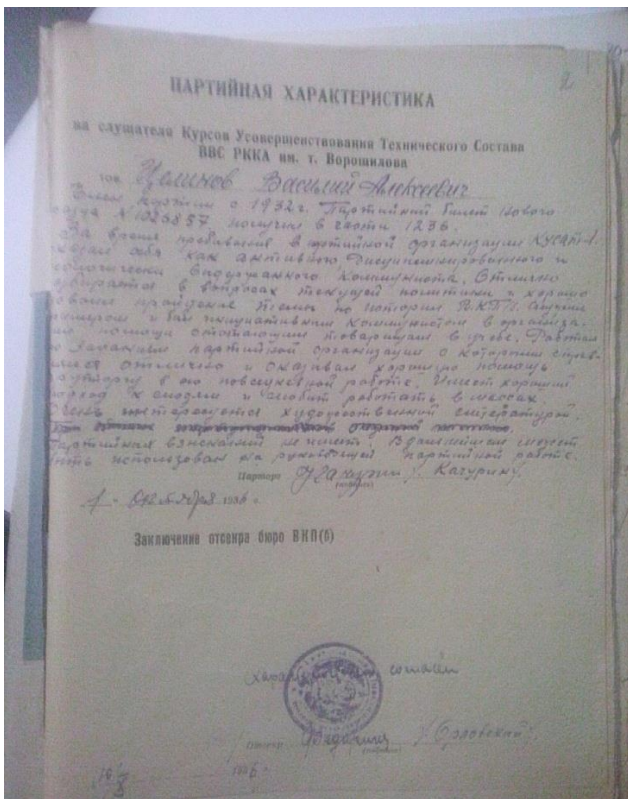 2
ПАРТИЙНАЯ ХАРАКТЕРИСТИКА
на слушателя Курсов Усовершенствования Технического Состава
ВВС РККА им. т. Ворошилова
тов. Целинов Василий Алексеевич
Член партии с 1932г. Партийный билет нового
№ 1025857 получен в части 1236.
За время пребывания в партийной организации КУСАТ-А
себя как активного дисциплинированного и
выдержанного коммуниста. Отлично
разбирается в вопросах текущей политики и хорошо
пройденные темы по истории В.К.П. Служил
примером и был инициативным коммунистом в организа-
помощи отстающим товарищам в учебе. Работал
партийной организации с которыми справ-
отлично и оказывал хорошую помощь
парторгу в его повседневной работе. Имеет хороший
подход к людям и умеет работать в массах
Очень интересуется художественной литературой.
Партийных взысканий не имеет. В дальнейшем может
быть использован на руководящей партийной работе.
Парторг /Качурин/.
1 - октября 1936 г.
Заключение отсекра бюро ВКП(б)
характеристикой согласен
/Орловский/
1936 г.